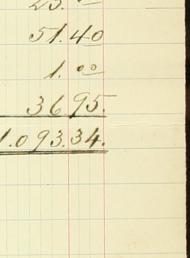 23.00
51.40
1.00
36 95.
1.093.34.